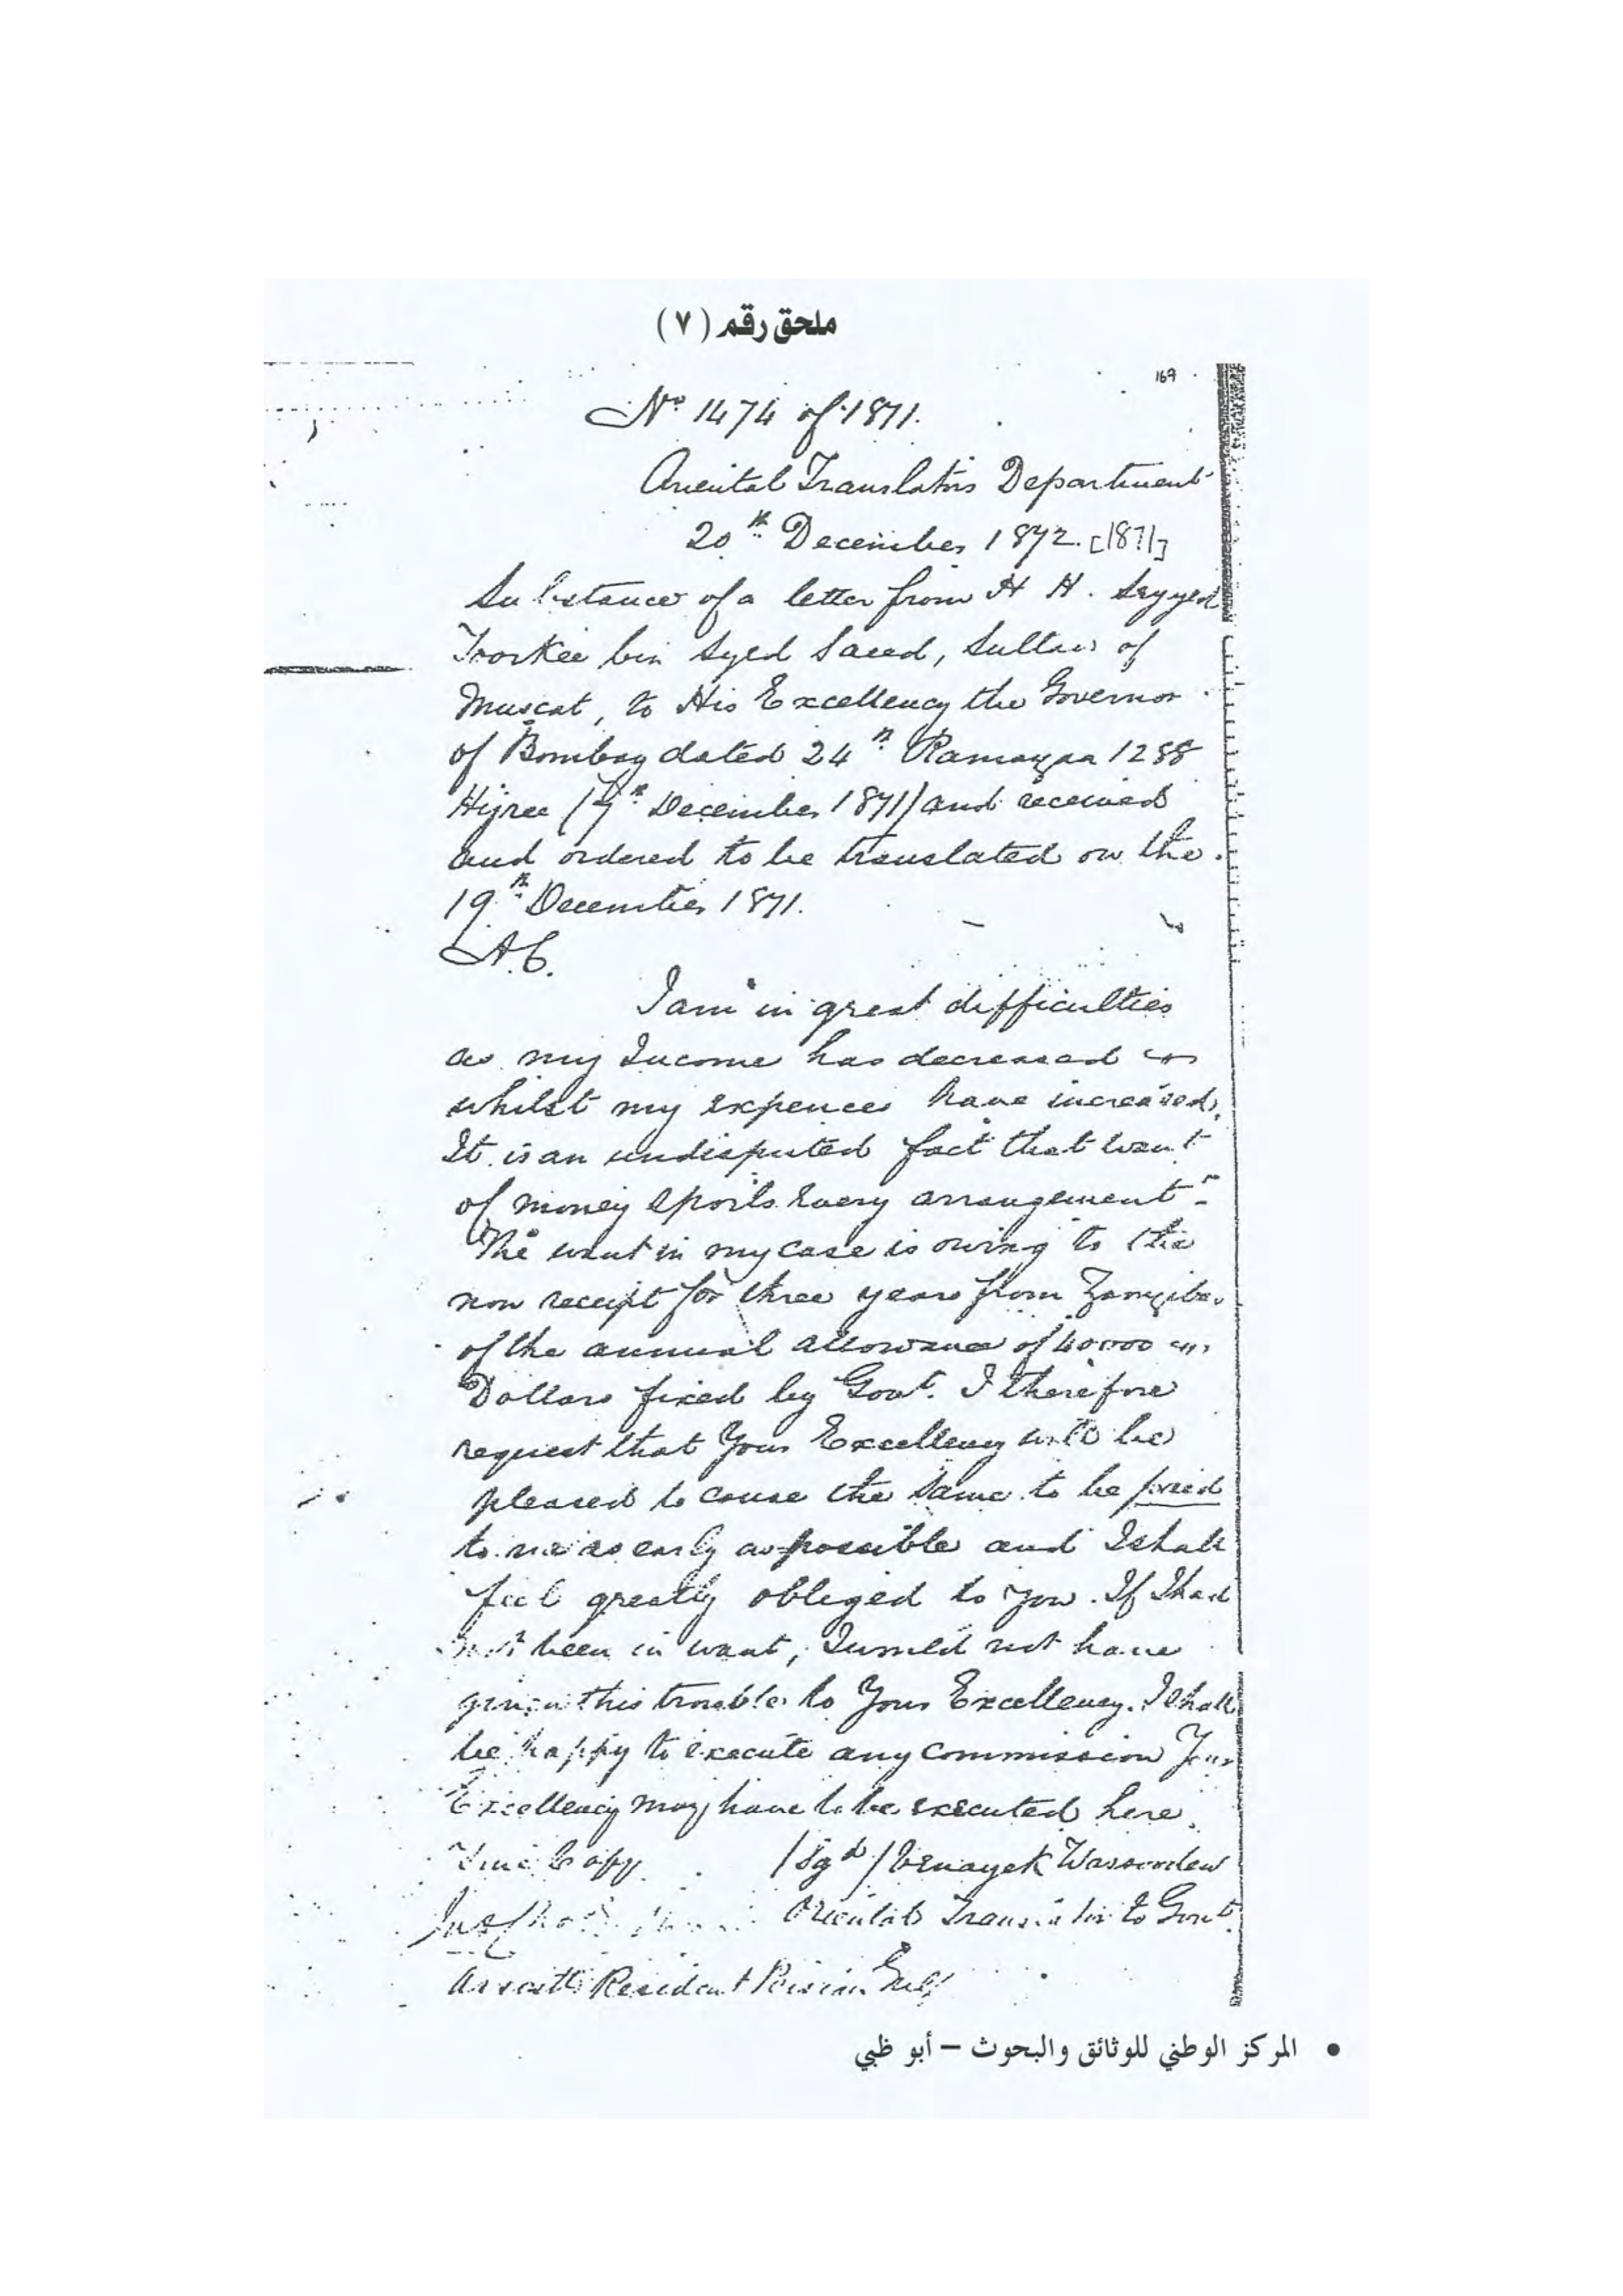 ملحق رقم ( ٧ )
169
No 1474 of 1871.
Oriental Translators Department
20th December 1872. [1871]
Substance of a letter from H H. Seyyed
Toorkee bin Syed Saeed, Sultan of
Muscat, to His Excellency the Governor
of Bombay dated 24th Ramazan 1288
Hijree (7th December 1871) and received
and ordered to be translated on the
19th December 1871.
A.C.
I am in great difficulties
as my Income has decreased
whilst my expences have increased.
It is an undisputed fact that want
of money spoils every arrangement
The want in my case is owing to the
non receipt for three years from Zanzibar
of the annual allowance of 40000
Dollars fixed by Govt. I therefore
request that Your Excellency will be
pleased to cause the same to be paid
to me as early as possible and I shall
feel greatly obliged to you. If I had
not been in want, I would not have
given this trouble to Your Excellency. I shall
be happy to execute any commission Your
Excellency may have to be executed here.
True Copy (Sgd) Venayek Wassoodew
Oriental Translator to Govt.
Assistt Resident Persian Gulf
• المركز الوطني للوثائق والبحوث – أبو ظبي